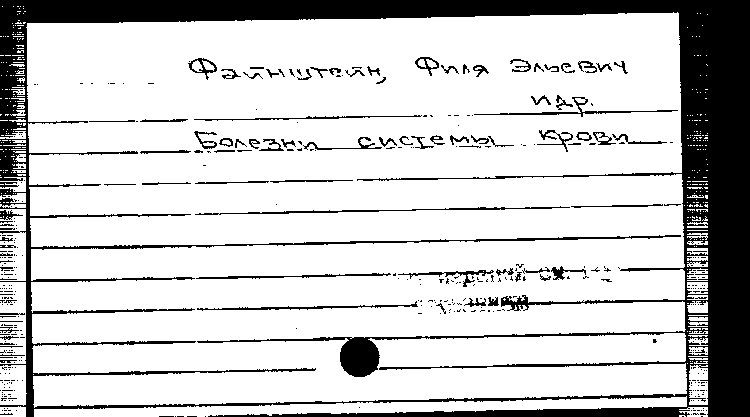 Файнштейн, Филя Эльевич
и др.
Болезни системы крови
изданий см.